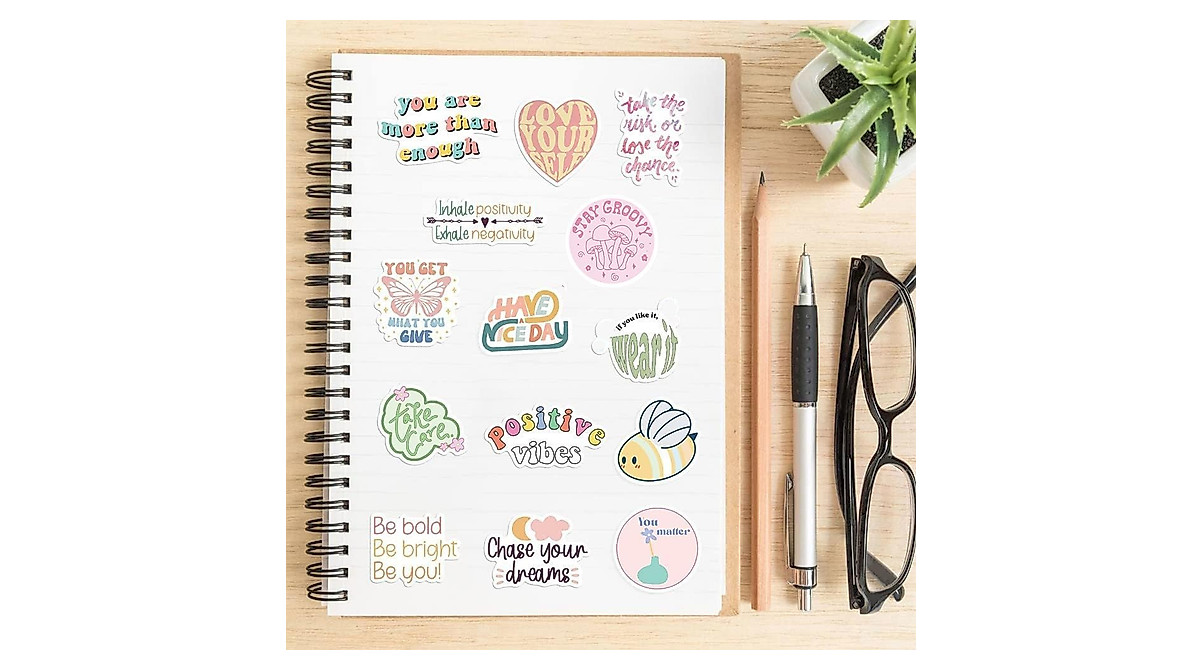 you are
more than
enough
LOVE
YOUR
SELF
take the
risk or
lose the
chance.
Inhale positivity
Exhale negativity
STAY GROOVY
YOU GET
WHAT YOU
GIVE
HAVE
A
NICE DAY
if you like it,
wear it
take
care.
positive
vibes
Be bold
Be bright
Be you!
Chase your
dreams
You
matter